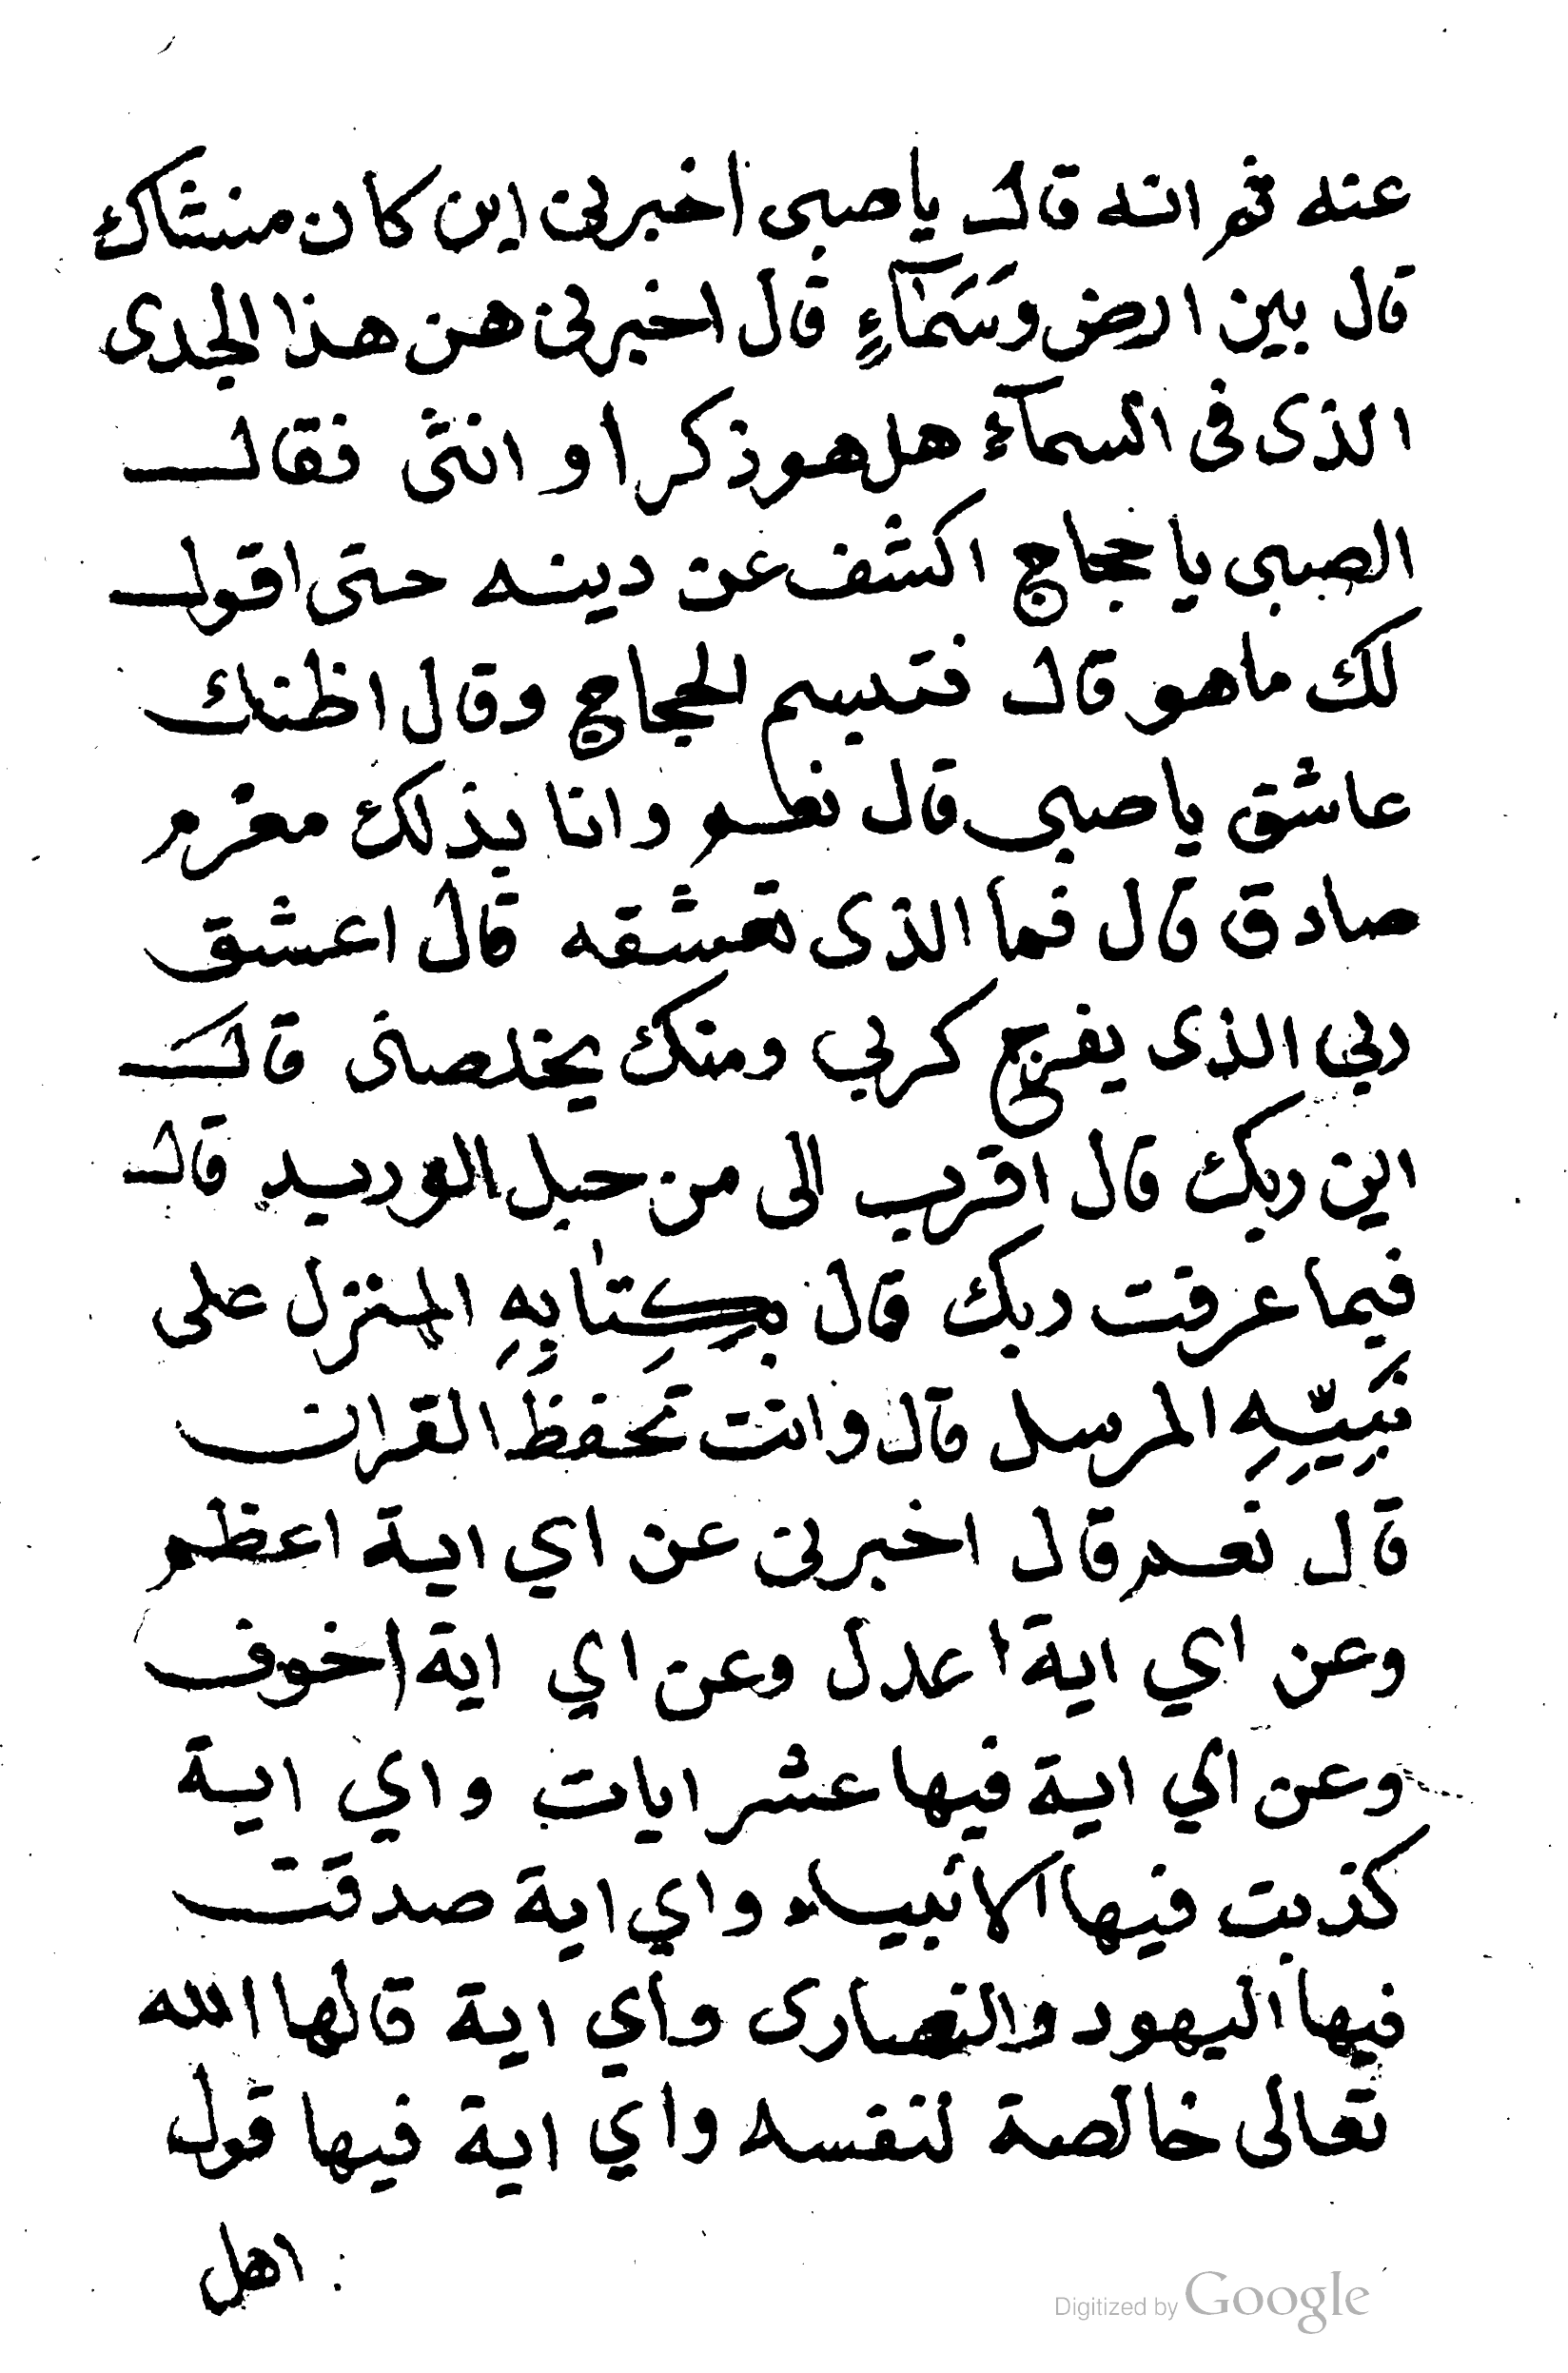 عنه ثم انه قال يا صبى اخبرنى اين كان منشاك
قال بين ارض وَسَمَآءٍ قال اخبرنى هن هذا الجدى
الذى فى السمآء هل هو ذكر او انثى فقال
الصبى يا حجاج اكشف عن دينه حتى اقول
لك ما هو قال فتبسم الحجاج وقال اظنك
عاشق يا صبى قال نعم وانا بذلك مغرم
صادق قال فما الذى تعشقه قال اعشق
ربي الذى يفرج كربي ومنك يخلصنى قال
اين ربك قال اقرب الى من حبل الوريد قال
فيما عرفت ربك قال بكِتابِهِ المنزل على
نَبِيّهِ المرسل قال وانت تحفظ القران
قال نعم قال اخبرنى عن اي اية اعظم
وعن اي اية اعدل وعن اي اية اخوف
وعن اي اية فيها عشر ايات واي اية
كذبت فيها الانبياء واي اية صدقت
فيها اليهود والنصارى واي اية قالها الله
تعالى خالصة لنفسه واي اية فيها قول
اهل
Digitized by Google